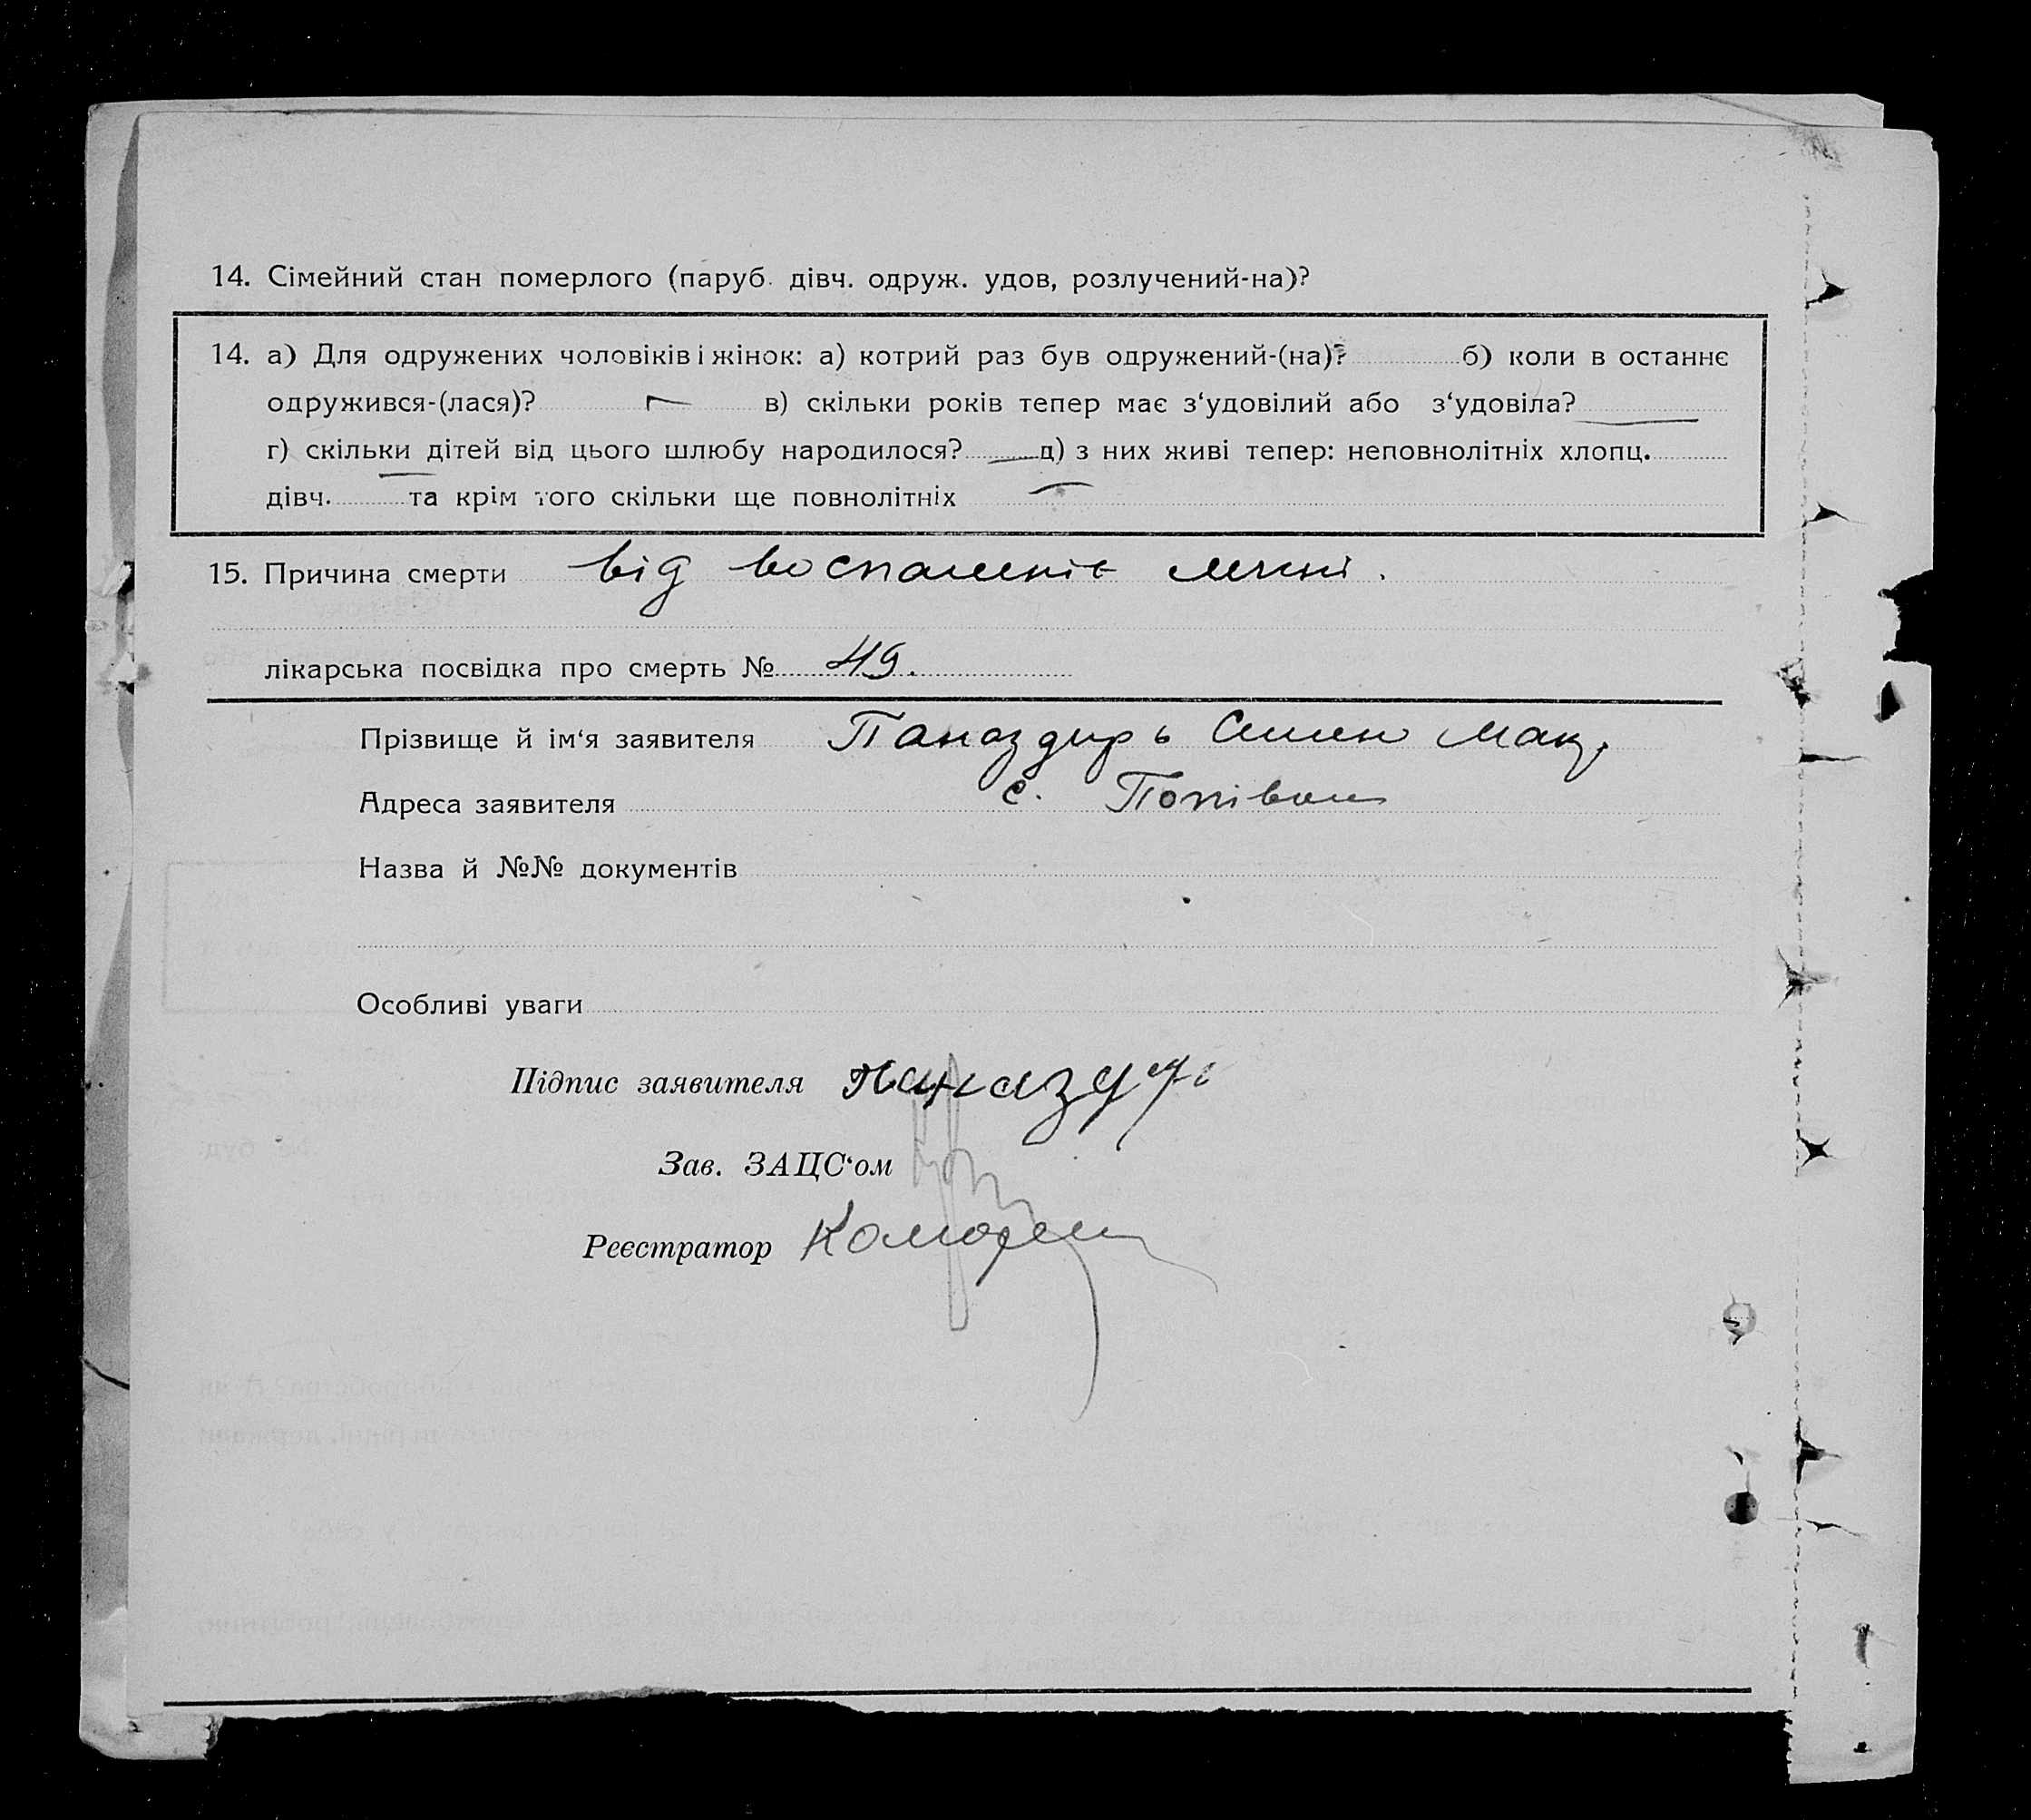 14. Сімейний стан померлого (паруб. дівч. одруж. удов, розлучений-на)?
14. а) Для одружених чоловіків і жінок: а) котрий раз був одружений-(на)? б) коли в останнє
одружився-(лася)? в) скільки років тепер має з‘удовілий або з‘удовіла?
г) скільки дітей від цього шлюбу народилося? д) з них живі тепер: неповнолітніх хлопц.
дівч. та крім того скільки ще повнолітніх
15. Причина смерти від воспаленія
лікарська посвідка про смерть № 49.
Прізвище й ім‘я заявителя Паназдирь Семен Мак.
Адреса заявителя с. Попівки
Назва й №№ документів
Особливі уваги
Підпис заявителя Паназдирь
Зав. ЗАЦС‘ом
Реєстратор